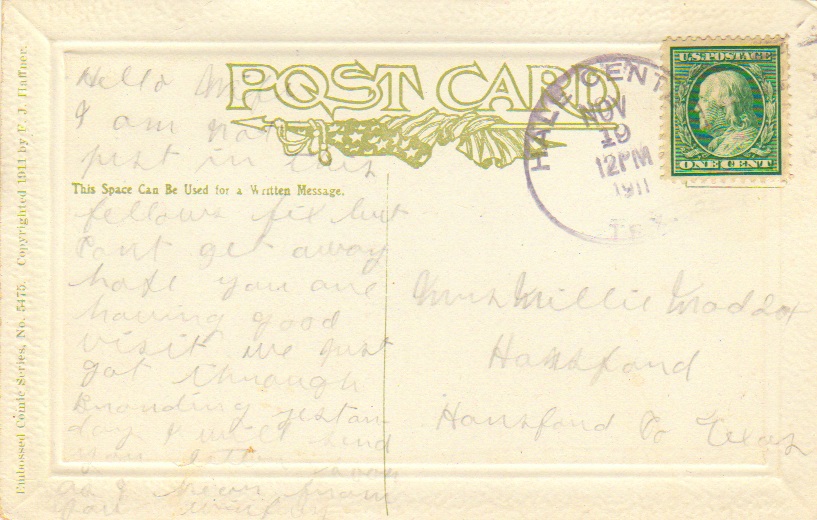 POST CARD
This Space Can Be Used for a Written Message.
Embossed Comic Series, No. 5475. Copyrighted 1911 by F. J. Haffner.
U.S. POSTAGE
ONE CENT
HALE CENT
NOV
19
12PM
1911
TEX
Hello
I am not
just in this
fellows fix but
Cant get away
hope you are
having good
visit we just
got through
Branding yester
day I will send
you letter soon
as I hear from
you
Mrs Millie Maddox
Hansford
Hansford Co Texas